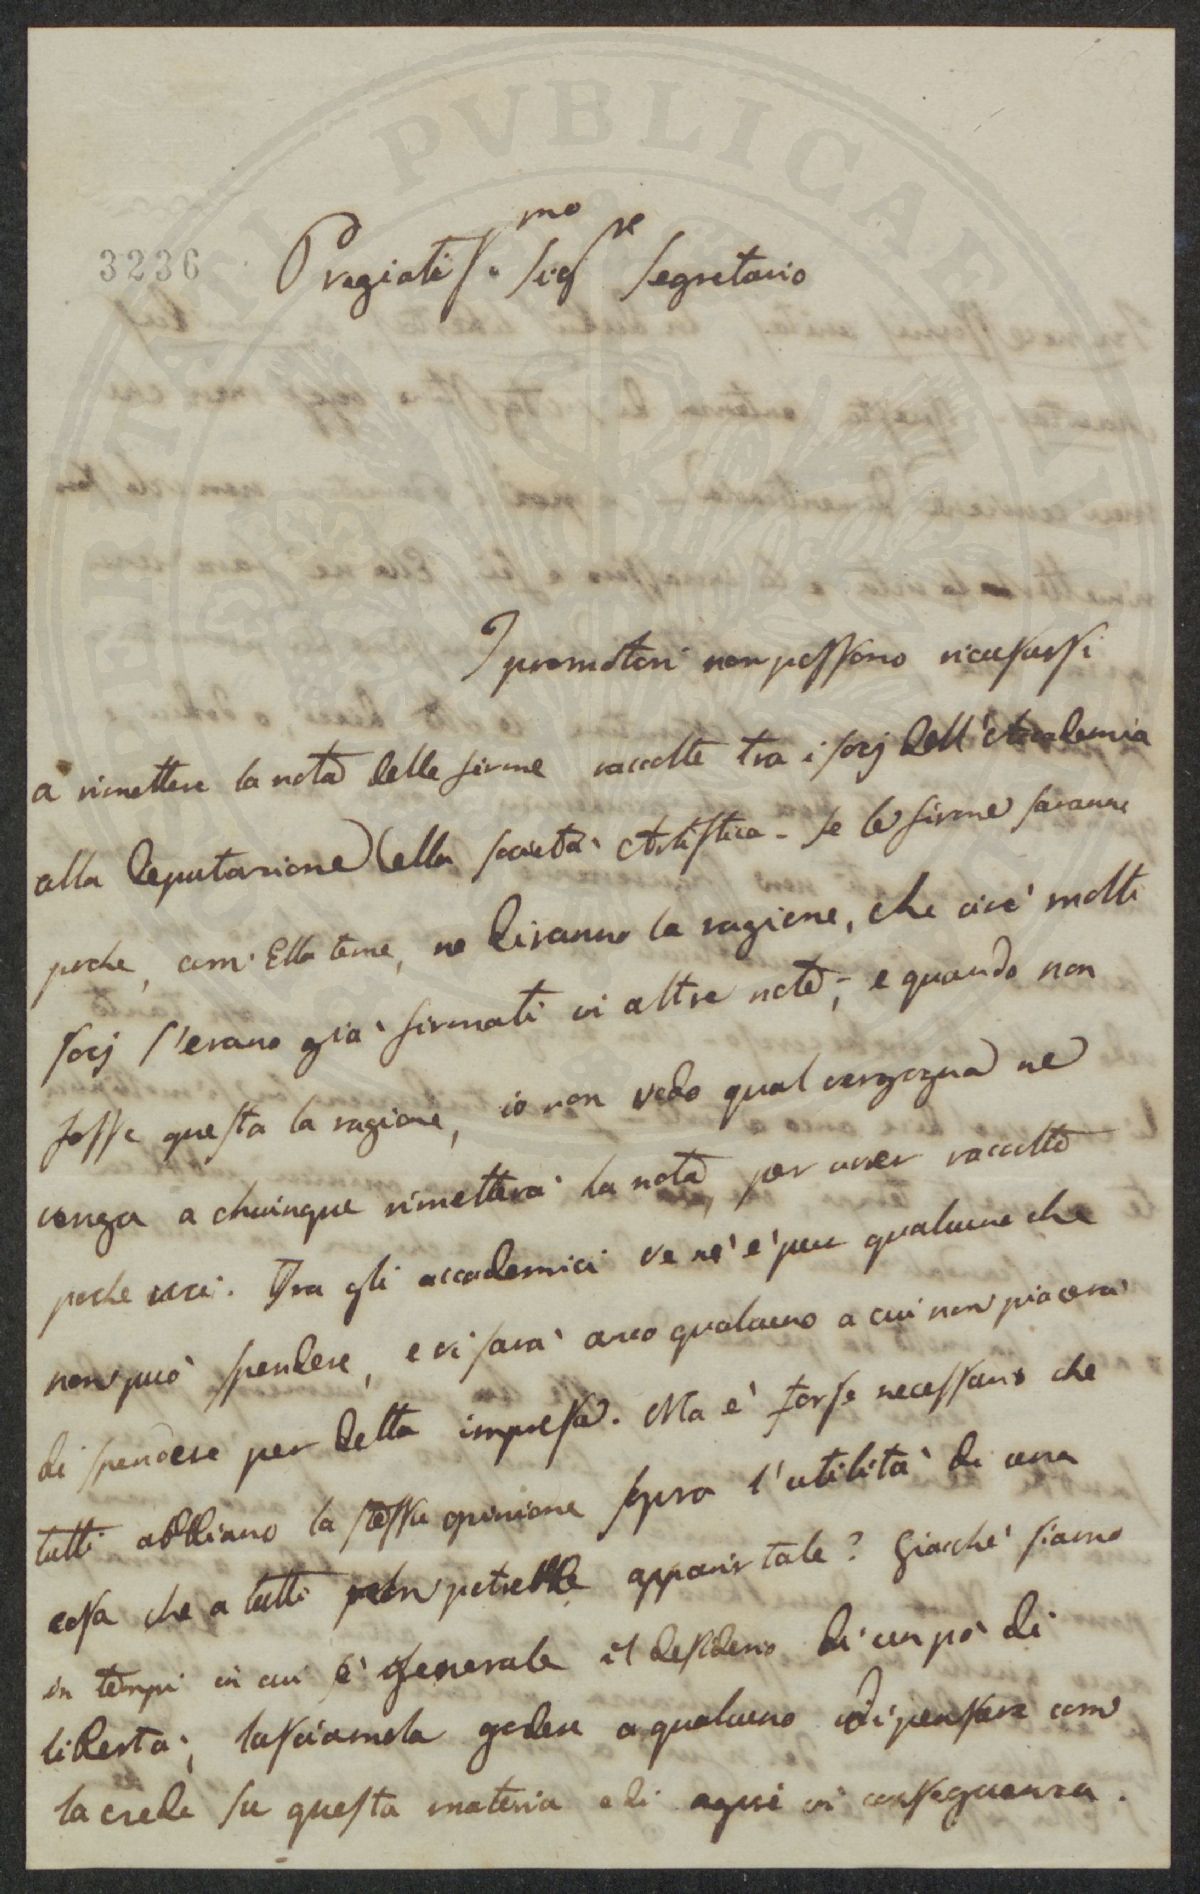 3236
Pregiatiss.mo Sigre Segretario
I promotori non possono ricusarsi
a rimettere la nota delle firme raccolte tra i socj dell'Accademia
alla deputazione della società Artistica - se le firme saranno
poche, com'Ella teme, ne diranno la ragione, che cioè molti
socj s'erano già firmati in altre note; e quando non
fosse questa la ragione, io non vedo qual vergogna ne
venga a chiunque rimetterà la nota per aver raccolto
poche voci. Tra gli accademici ve n'è pur qualcuno che
non può spendere, e vi sarà anco qualcuno a cui non piacerà
di spendere per detta impresa. Ma è forse necessario che
tutti abbiano la stessa opinione sopra l'utilità di una
cosa che a tutti non potrebbe apparir tale? Giacchè siamo
in tempi in cui è generale il desiderio di un pò di
libertà; lasciamola godere a qualcuno di pensare come
la crede su questa materia e di agire in conseguenza.
PVBLICAE